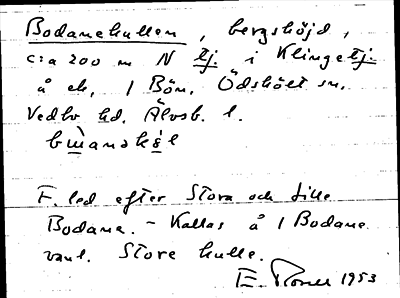 Bodanekullen, bergshöjd,
c:a 200 m N tj. i Klingetj.
å ek, 1 Bön. Ödskölt sn.
Vedbo hd. Älvsb. l.
F. led efter Stora och Lille
Bodane. - Kallas å 1 Bodane
vanl. Store kulle.
E. 1953